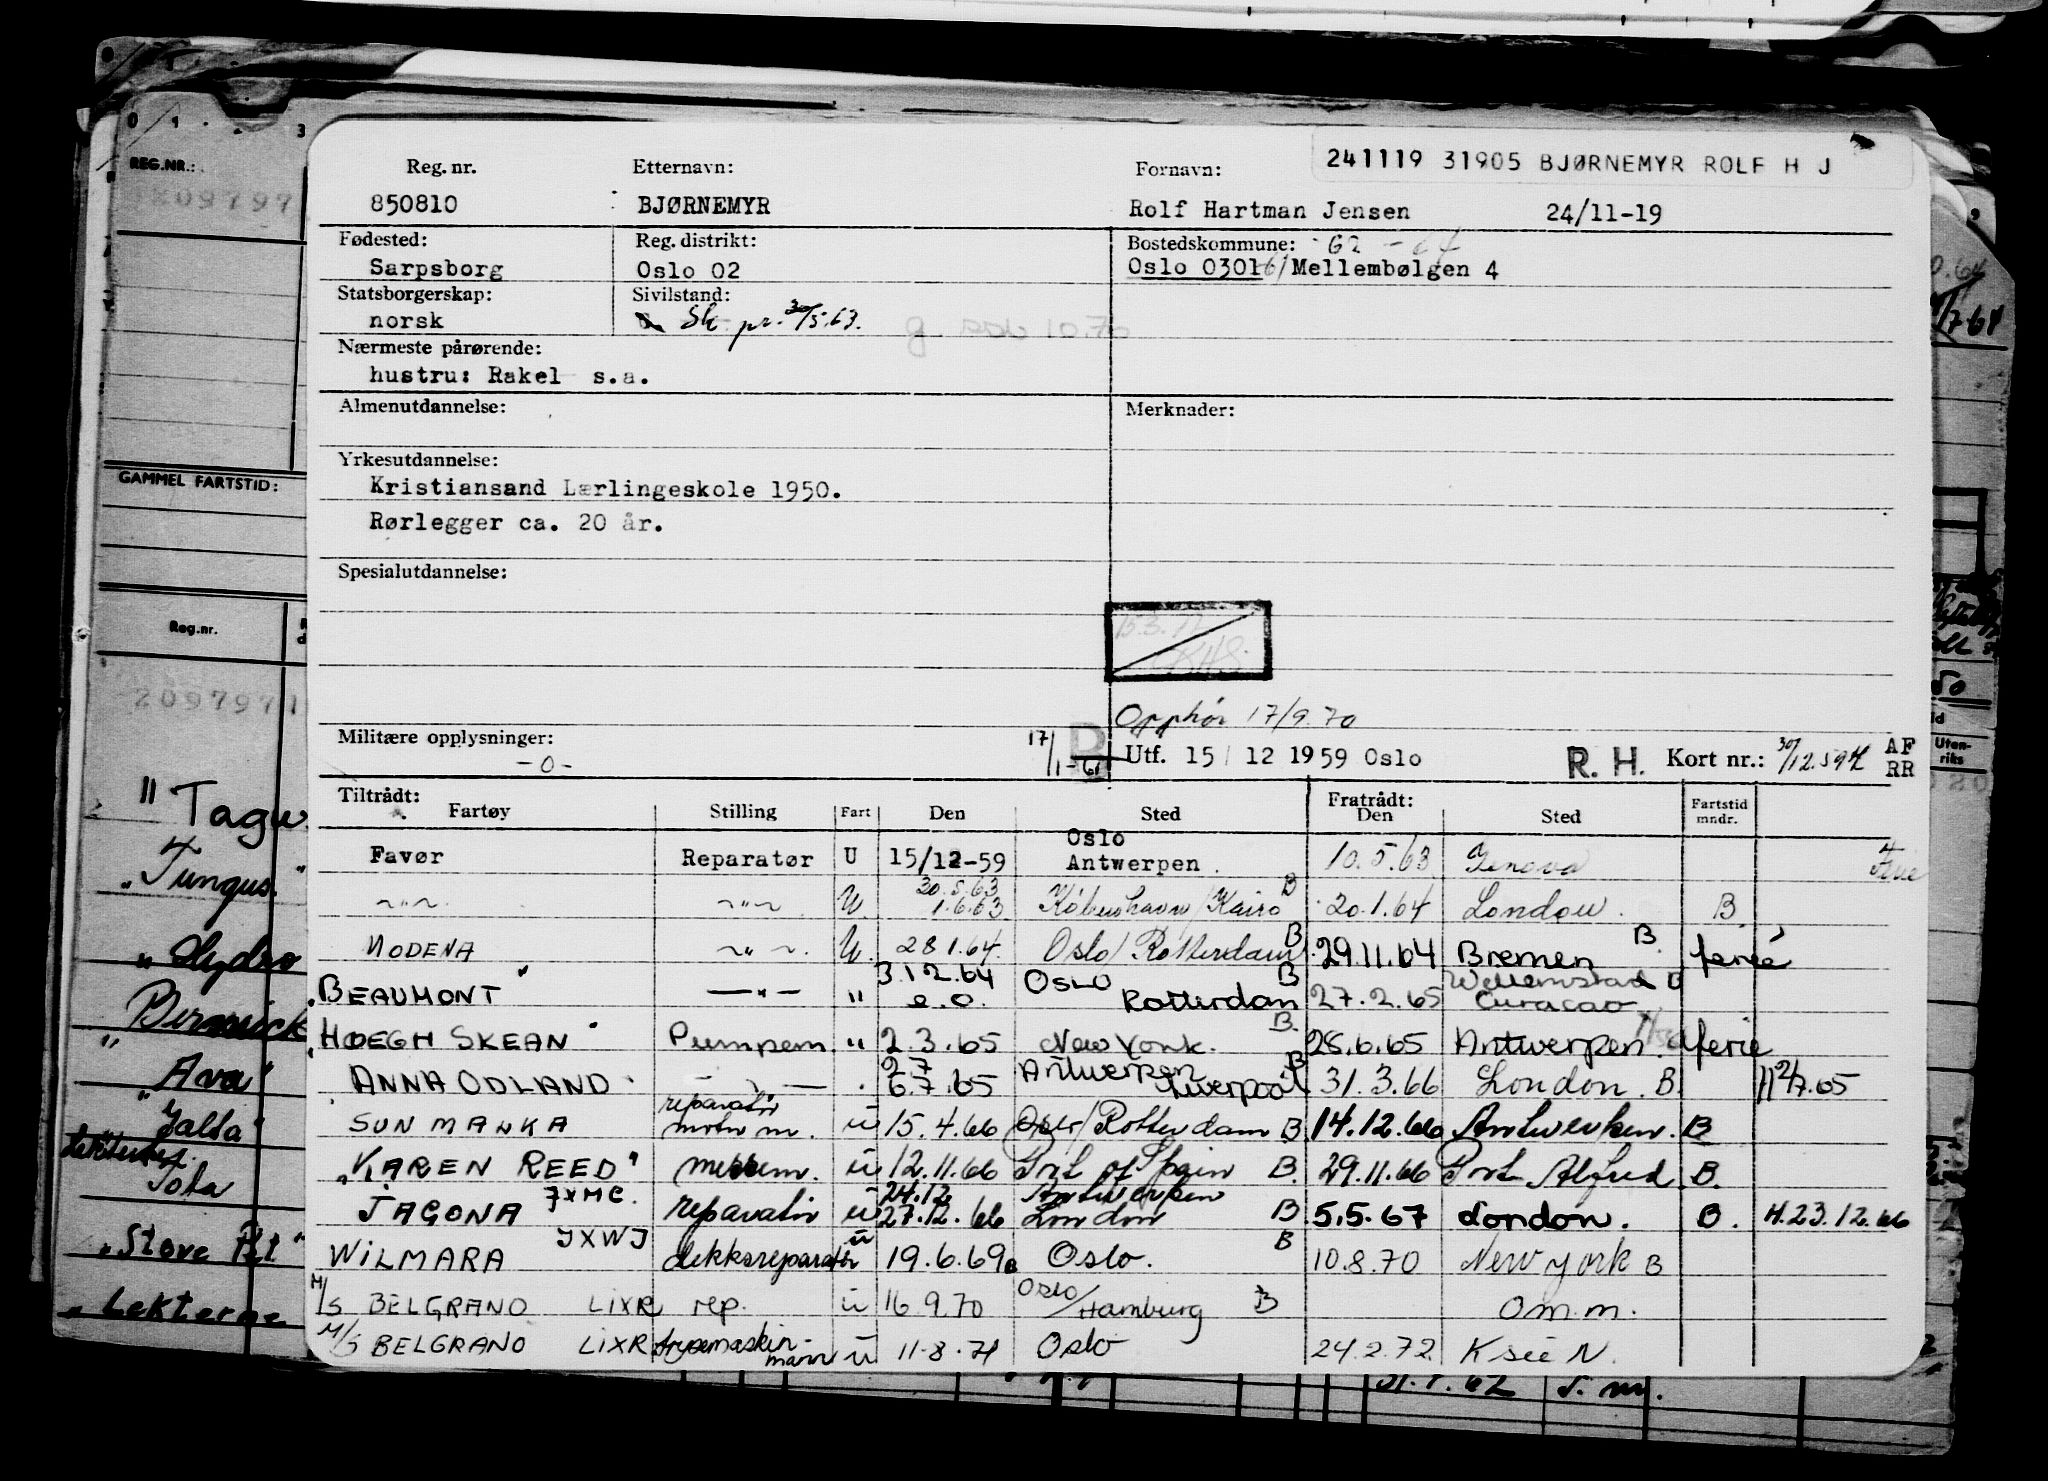 241119 31905 BJØRNEMYR ROLF H J
Reg. nr. Etternavn: Fornavn:
850810 BJØRNEMYR Rolf Hartman Jensen 24/11-19
Fødested: Reg. distrikt: Bostedskommune: 62 - 64
Sarpsborg Oslo 02 Oslo 0301 Mellembølgen 4
Statsborgerskap: Sivilstand:
norsk Sk pr. 30/5.63.
Nærmeste pårørende:
hustru: Rakel s.a.
Almenutdannelse: Merknader:
Yrkesutdannelse:
Kristiansand Lærlingeskole 1950.
Rørlegger ca. 20 år.
Spesialutdannelse:
Opphør 17/9.70
Militære opplysninger: 17/1-61 Utf. 15/12 1959 Oslo R. H. Kort nr.: 30/12.59 AF
-o- RR
Tiltrådt: Fratrådt:
Fartøy Stilling Fart Den Sted Den Sted Fartstid mndr.
Oslo
Favør Reparatør U 15/12-59 Antwerpen 10.5.63 Genova
30.5.63
-"- -"- U. 1.6.63 København/Kairo B 20.1.64 London. B
MODENA -"- U. 28 1.64. Oslo/Rotterdam B 29.11.64 Bremen B. ferie
3.12.64 Oslo B Willemstad B
"BEAUMONT" -"- " e.o. Rotterdam 27.2.65 Curacao
"HØEGH SKEAN" Pumpem. " 2.3.65 New York. B. 28.6.65 Antwerpen. ferie
2.7 Antwerpen B
ANNA ODLAND - " - 6.7.65 Liverpool 31.3.66 London. B. H 2/7.65
reparatør
SUN MANKA motorm. ü 15.4.66 Oslo/Rotterdam B. 14.12.66 Antwerpen. B
"KAREN REED" ü 12.11.66 Port of Spain B. 29.11.66 Port Alfred. B.
JXMC 24.12 Antwerpen
JAGONA reparatør ü 27.12.66 London B 5.5.67 London. B. H.23.12.66
JXWJ
WILMARA dekksreparatør ü 19.6.69 Oslo. B 10.8.70 New York B
M/S BELGRANO LIXR rep. ü 16 9.70 Oslo/Hamburg B Om.m.
M/S BELGRANO LIXR frysemaskinmann ü 11.8.71 Oslo 24.2.72. K sie N.
REG.NR.:
GAMMEL FARTSTID:
Reg.nr.
2097971
" Tagus
"Tungus"
"Hydro
"Ava"
"Jalta"
Tota
"Stove
"Lekterne
Utenriks